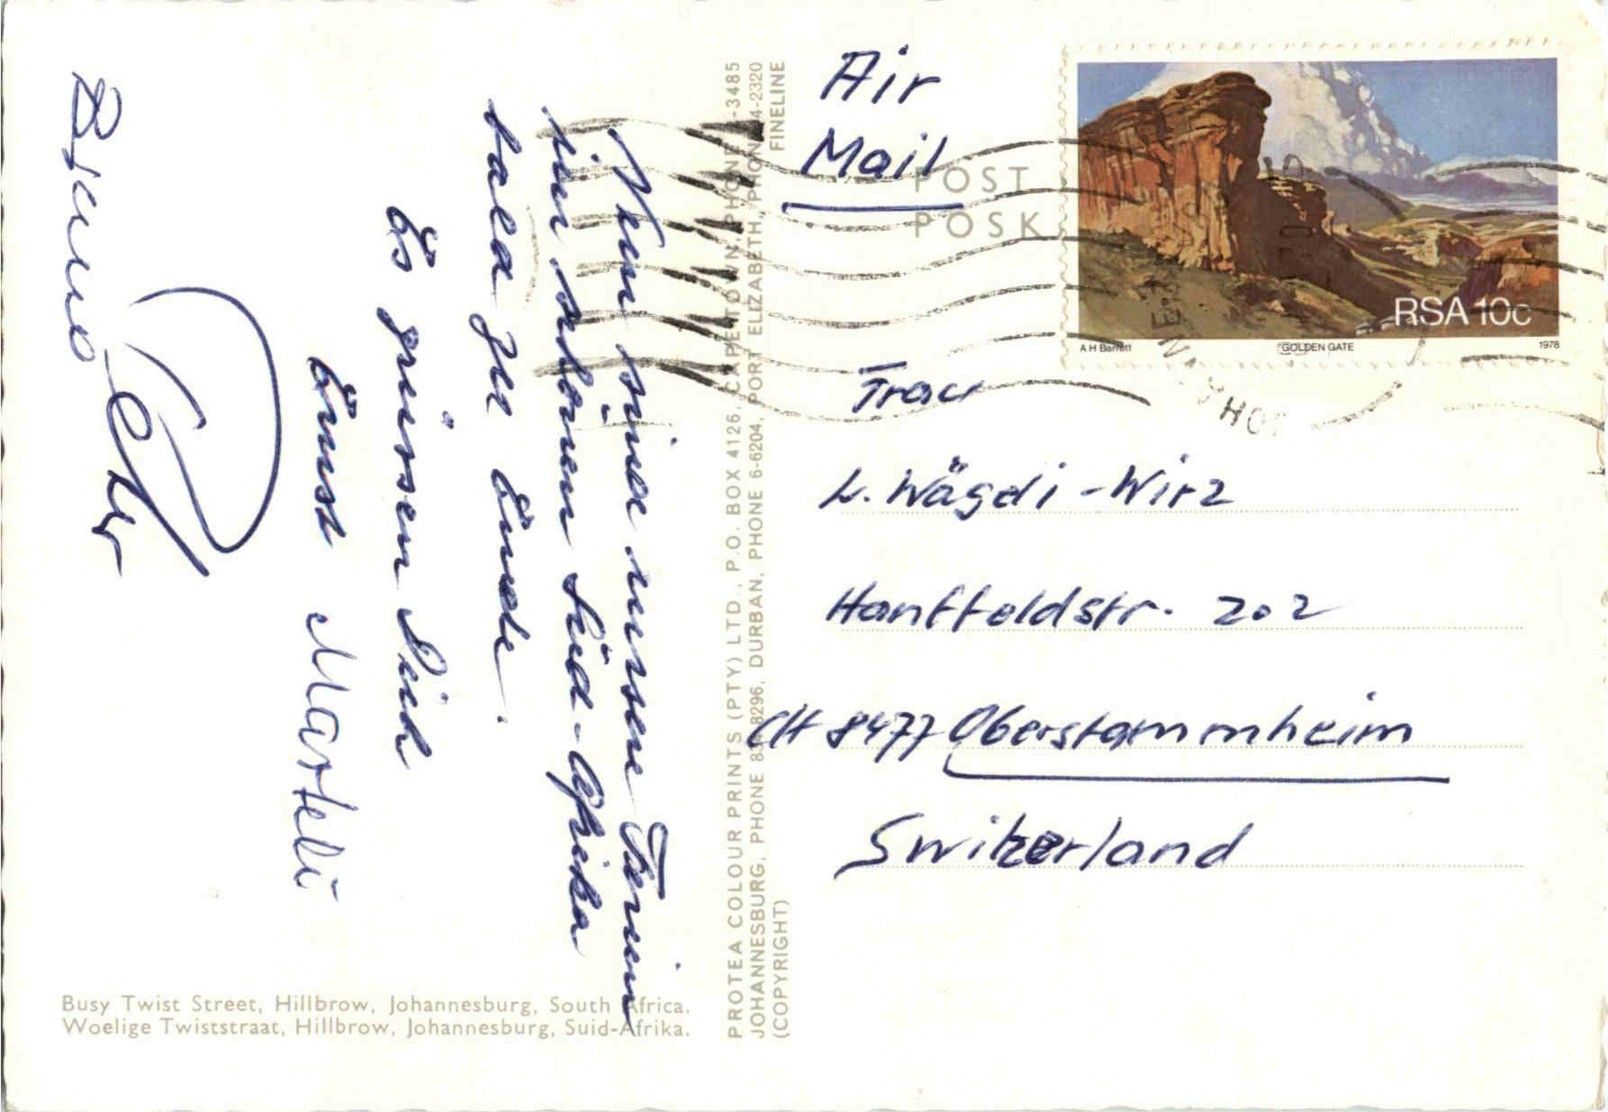 Nun sind unsere Ferien
im schönen Süd-Afrika
bald zu Ende.
Es grüssen Dich
Ernst Marteli
Bruno Peter
Busy Twist Street, Hillbrow, Johannesburg, South Africa.
Woelige Twiststraat, Hillbrow, Johannesburg, Suid-Afrika.
PROTEA COLOUR PRINTS (PTY) LTD., P.O. BOX 4126, CAPE TOWN, PHONE -3485
JOHANNESBURG, PHONE 8296, DURBAN, PHONE 6-6204, PORT ELIZABETH, PHONE 4-2320
(COPYRIGHT) FINELINE
Air
Mail
POST
POSK
RSA 10c
A H Barrett GOLDEN GATE 1978
Frau
L. Wägeli-Wirz
Hanffeldstr. 202
CH 8477 Oberstammheim
Switzerland